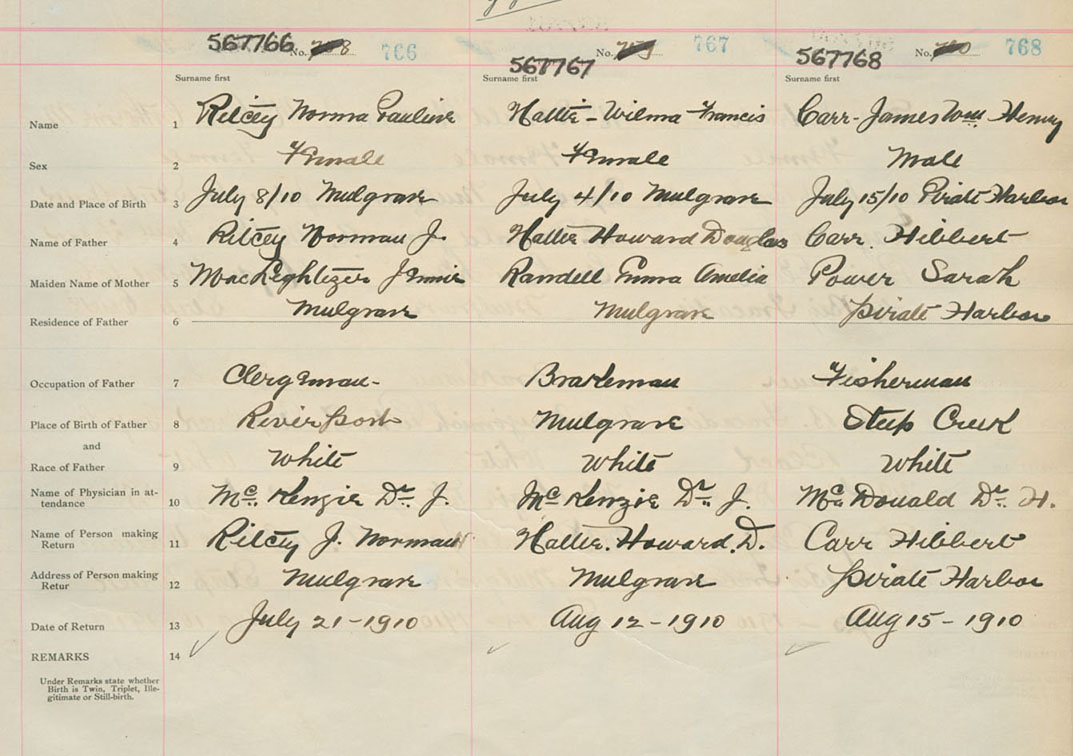 567766 No. 766
567767 No. 767
567768 No. 768
Surname first Surname first Surname first
Name 1 Ritcey Norma Pauline Hattie - Wilma Francis Carr - James Wm Henry
Sex 2 Female Female Male
Date and Place of Birth 3 July 8/10 Mulgrave July 4/10 Mulgrave July 15/10 Pirate Harbor
Name of Father 4 Ritcey Norman J. Howard Douglas Carr. Hibbert
Maiden Name of Mother 5 Jennie Randell Emma Amelia Power Sarah
Residence of Father 6 Mulgrave Mulgrave Pirate Harbor
Occupation of Father 7 Clergyman - Brakeman Fisherman
Place of Birth of Father 8 River port Mulgrave Steep Creek
and
Race of Father 9 White White White
Name of Physician in at-
tendance 10 Mc. Kenzie Dr. J. Mc Kenzie Dr. J. Mc Donald Dr. H.
Name of Person making
Return 11 Ritcey J. Norman Howard. D. Carr Hibbert
Address of Person making
Retur 12 Mulgrave Mulgrave Pirate Harbor
Date of Return 13 July 21 - 1910 Aug 12 - 1910 Aug 15 - 1910
REMARKS 14
Under Remarks state whether
Birth is Twin, Triplet, Ille-
gitimate or Still-birth.